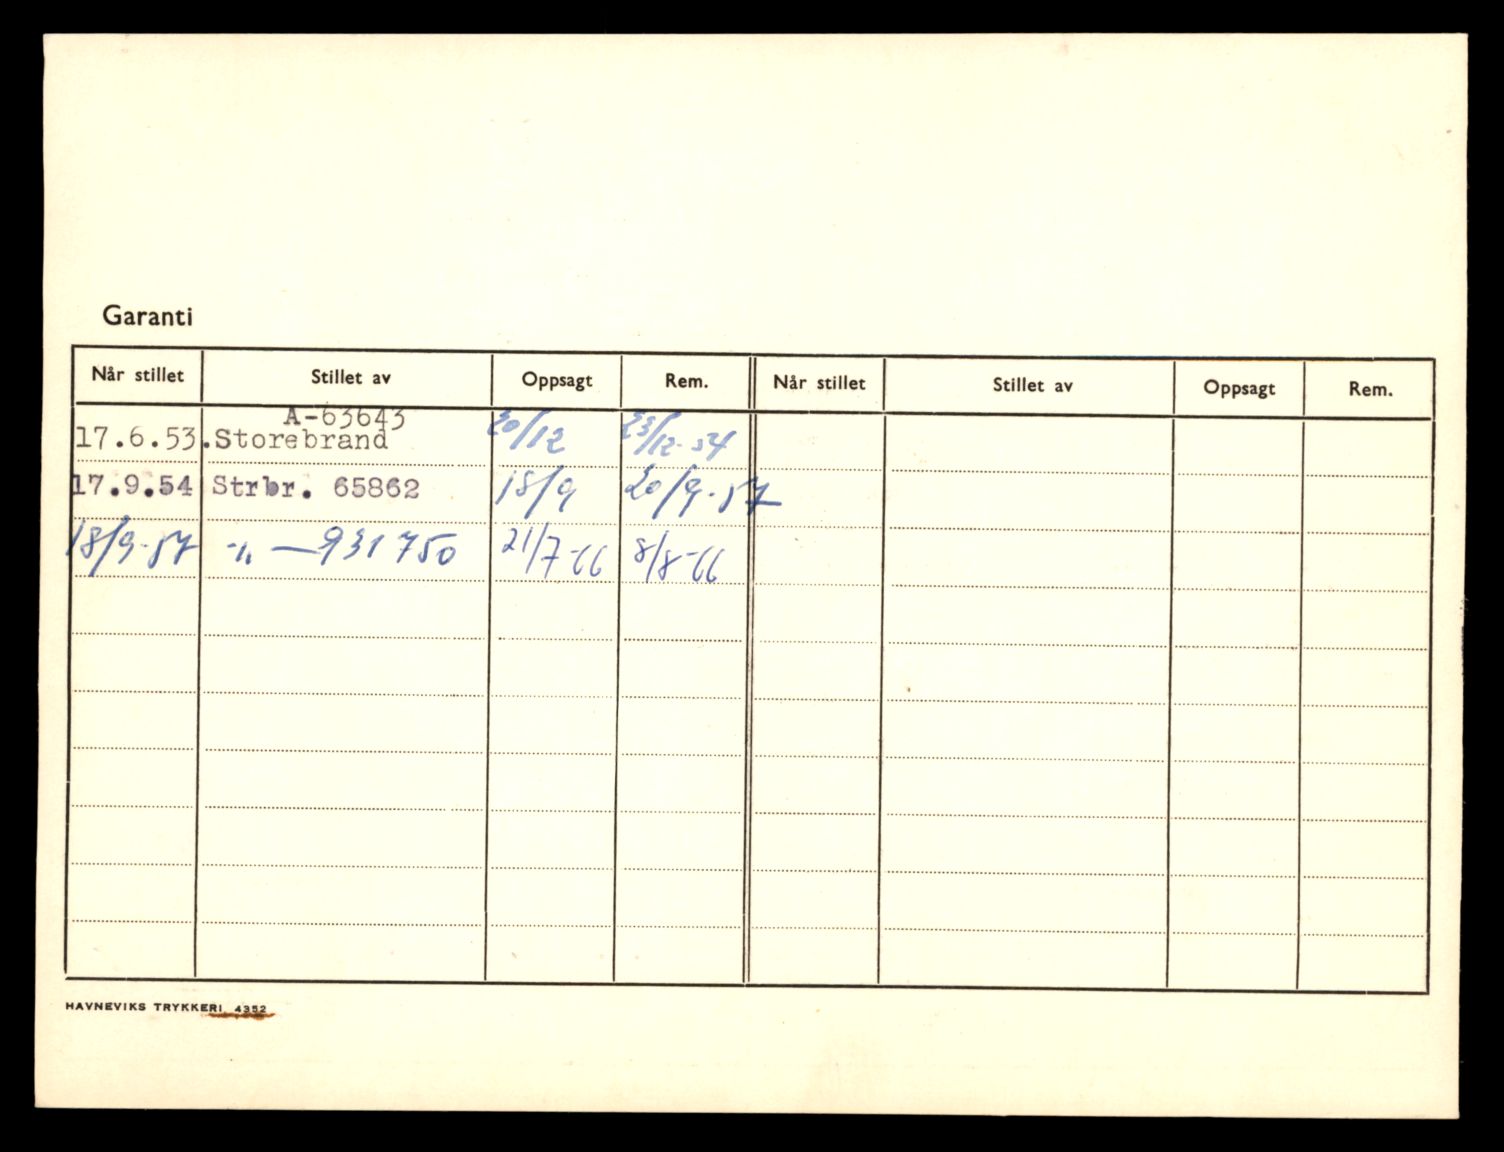 Garanti
Når stillet Stillet av Oppsagt Rem. Når stillet Stillet av Oppsagt Rem.
A-63643
17.6.53. Storebrand 20/12 23/12-54
17.9.54 Strbr. 65862 18/9 20/9-57
18/9-57 -"- — 931750 21/7-66 8/8-66
HAVNEVIKS TRYKKERI 4352